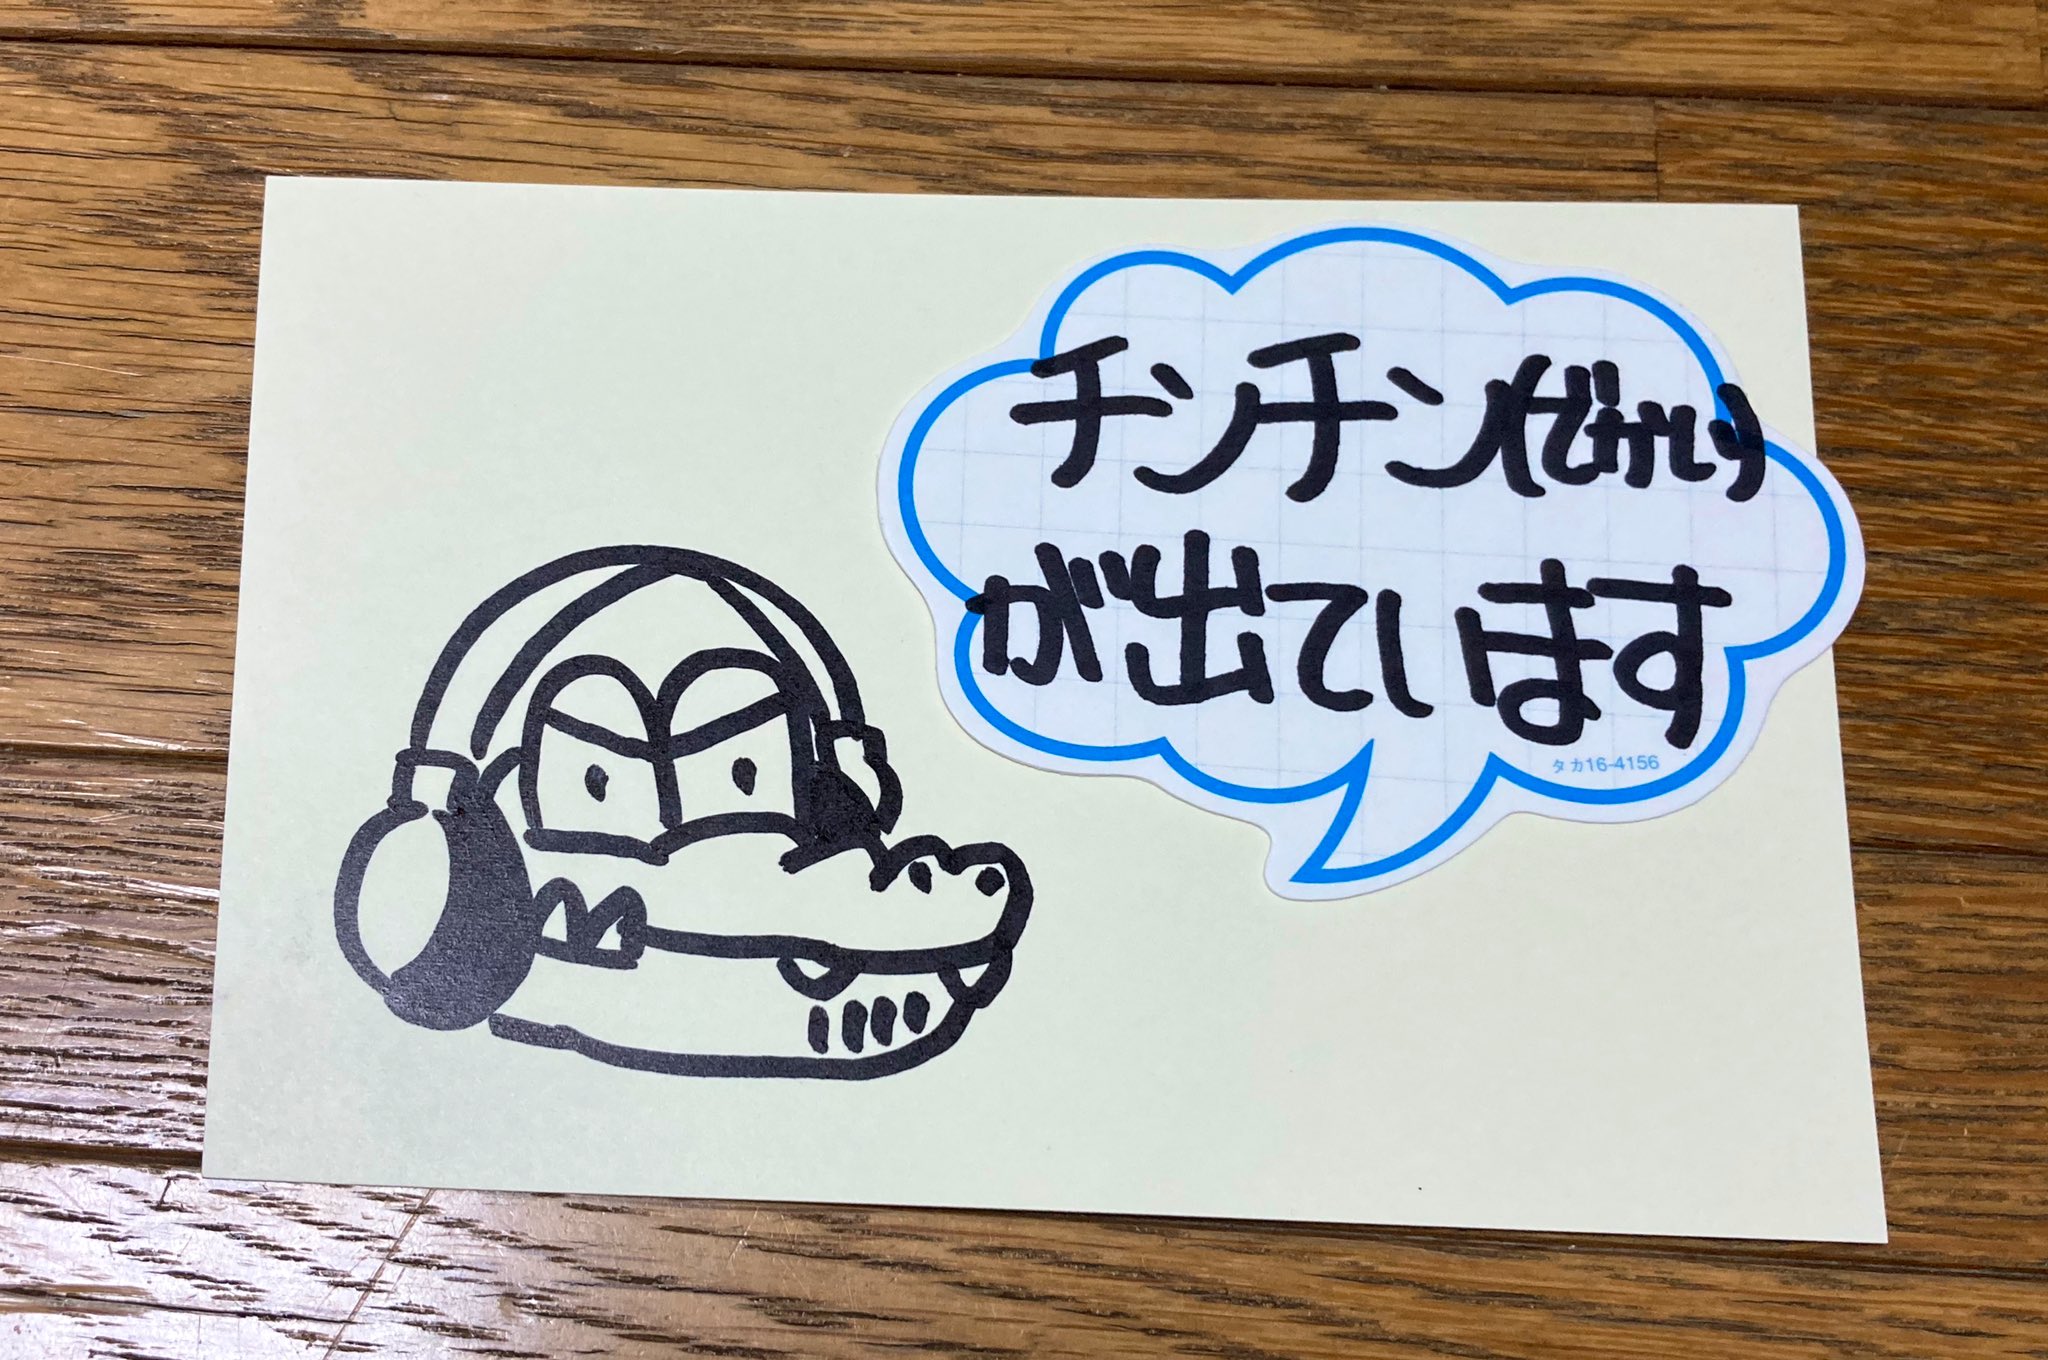 チンチン(でかい)
が出ています
タカ16-4156